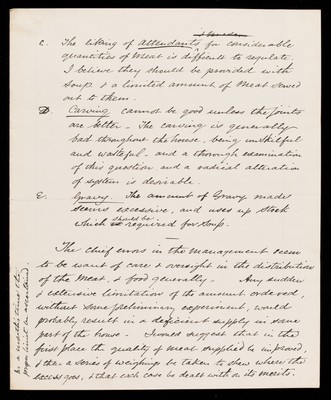 C. The liking of attendants for considerable
quantities of meat is difficult to regulate.
I believe they should be provided with
soup & a limited amount of meat served
out to them.
D. Carving cannot be good unless the joints
are better – The carving is generally
bad throughout the house, being unskilful
and wasteful – and a thorough examination
of this question and a radical alteration
of system is desirable.
E. Gravy. The amount of Gravy made
seems excessive, and uses up Stock
which should be required for Soup.
The chief errors in the management seem
to be want of care & oversight in the distribution
of the meat, & food generally – Any sudden
& extensive limitation of the amount ordered,
without some preliminary experiment, would
probably result in a deficient supply in some
part of the house – I would suggest that in the
first place the quality of meat supplied be improved,
& that a series of weighings be taken to shew where the
excess goes, & that each case be dealt with on its merits.
be a months time the